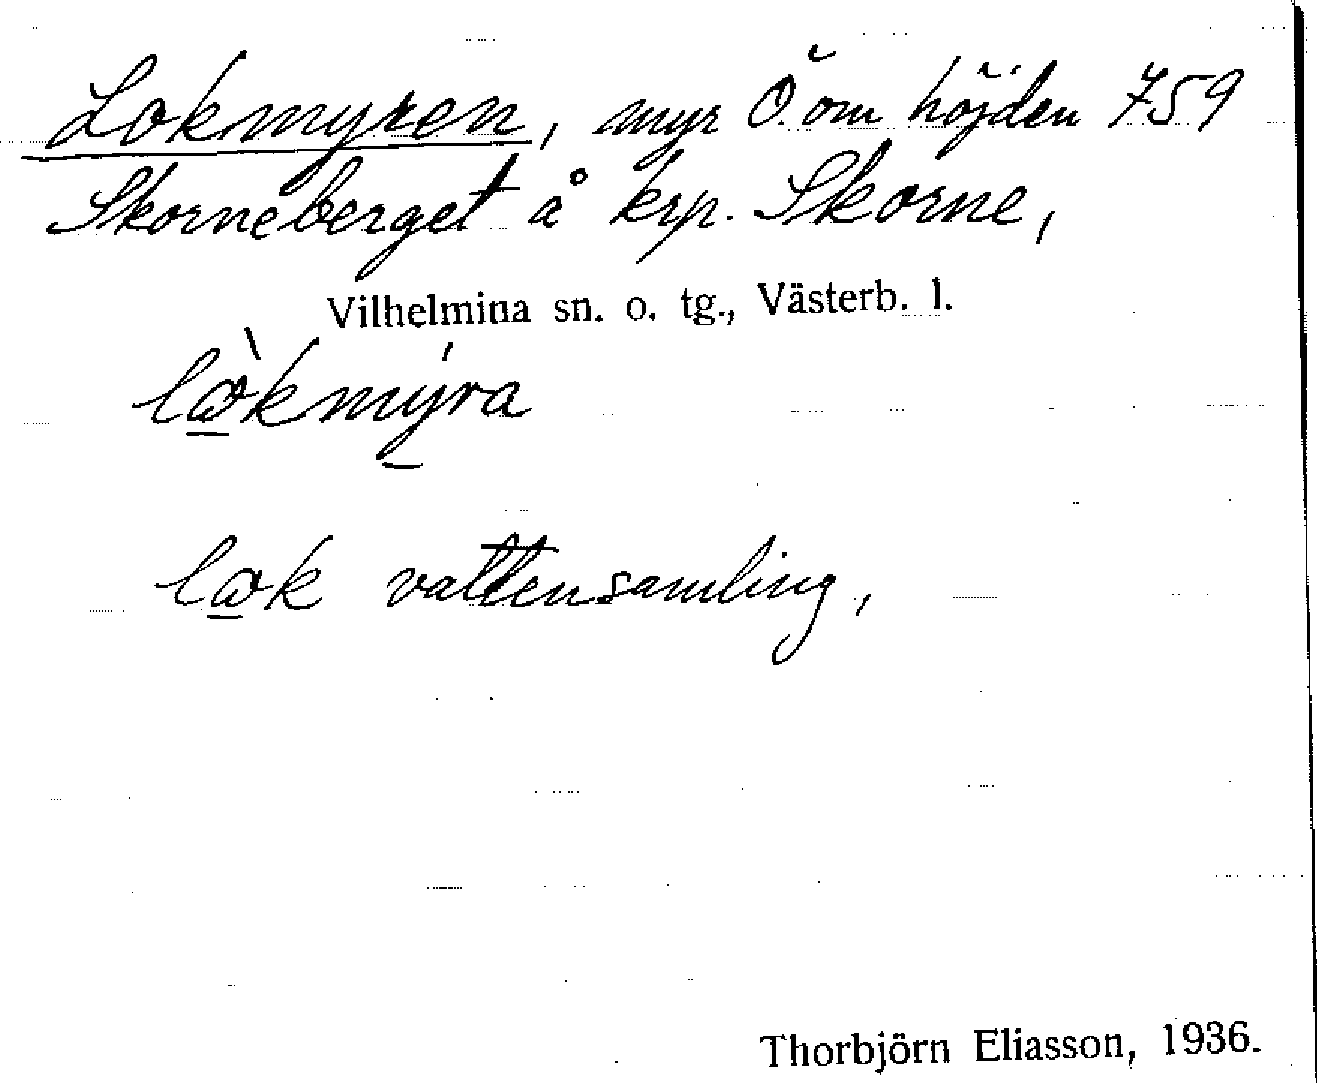 Lokmyren, myr Ö om höjden 759
Skorneberget å krp. Skorne,
Vilhelmina sn. o. tg., Västerb. l.
lo̠kmy̠ra
lo̠k vattensamling,
Thorbjörn Eliasson, 1936.